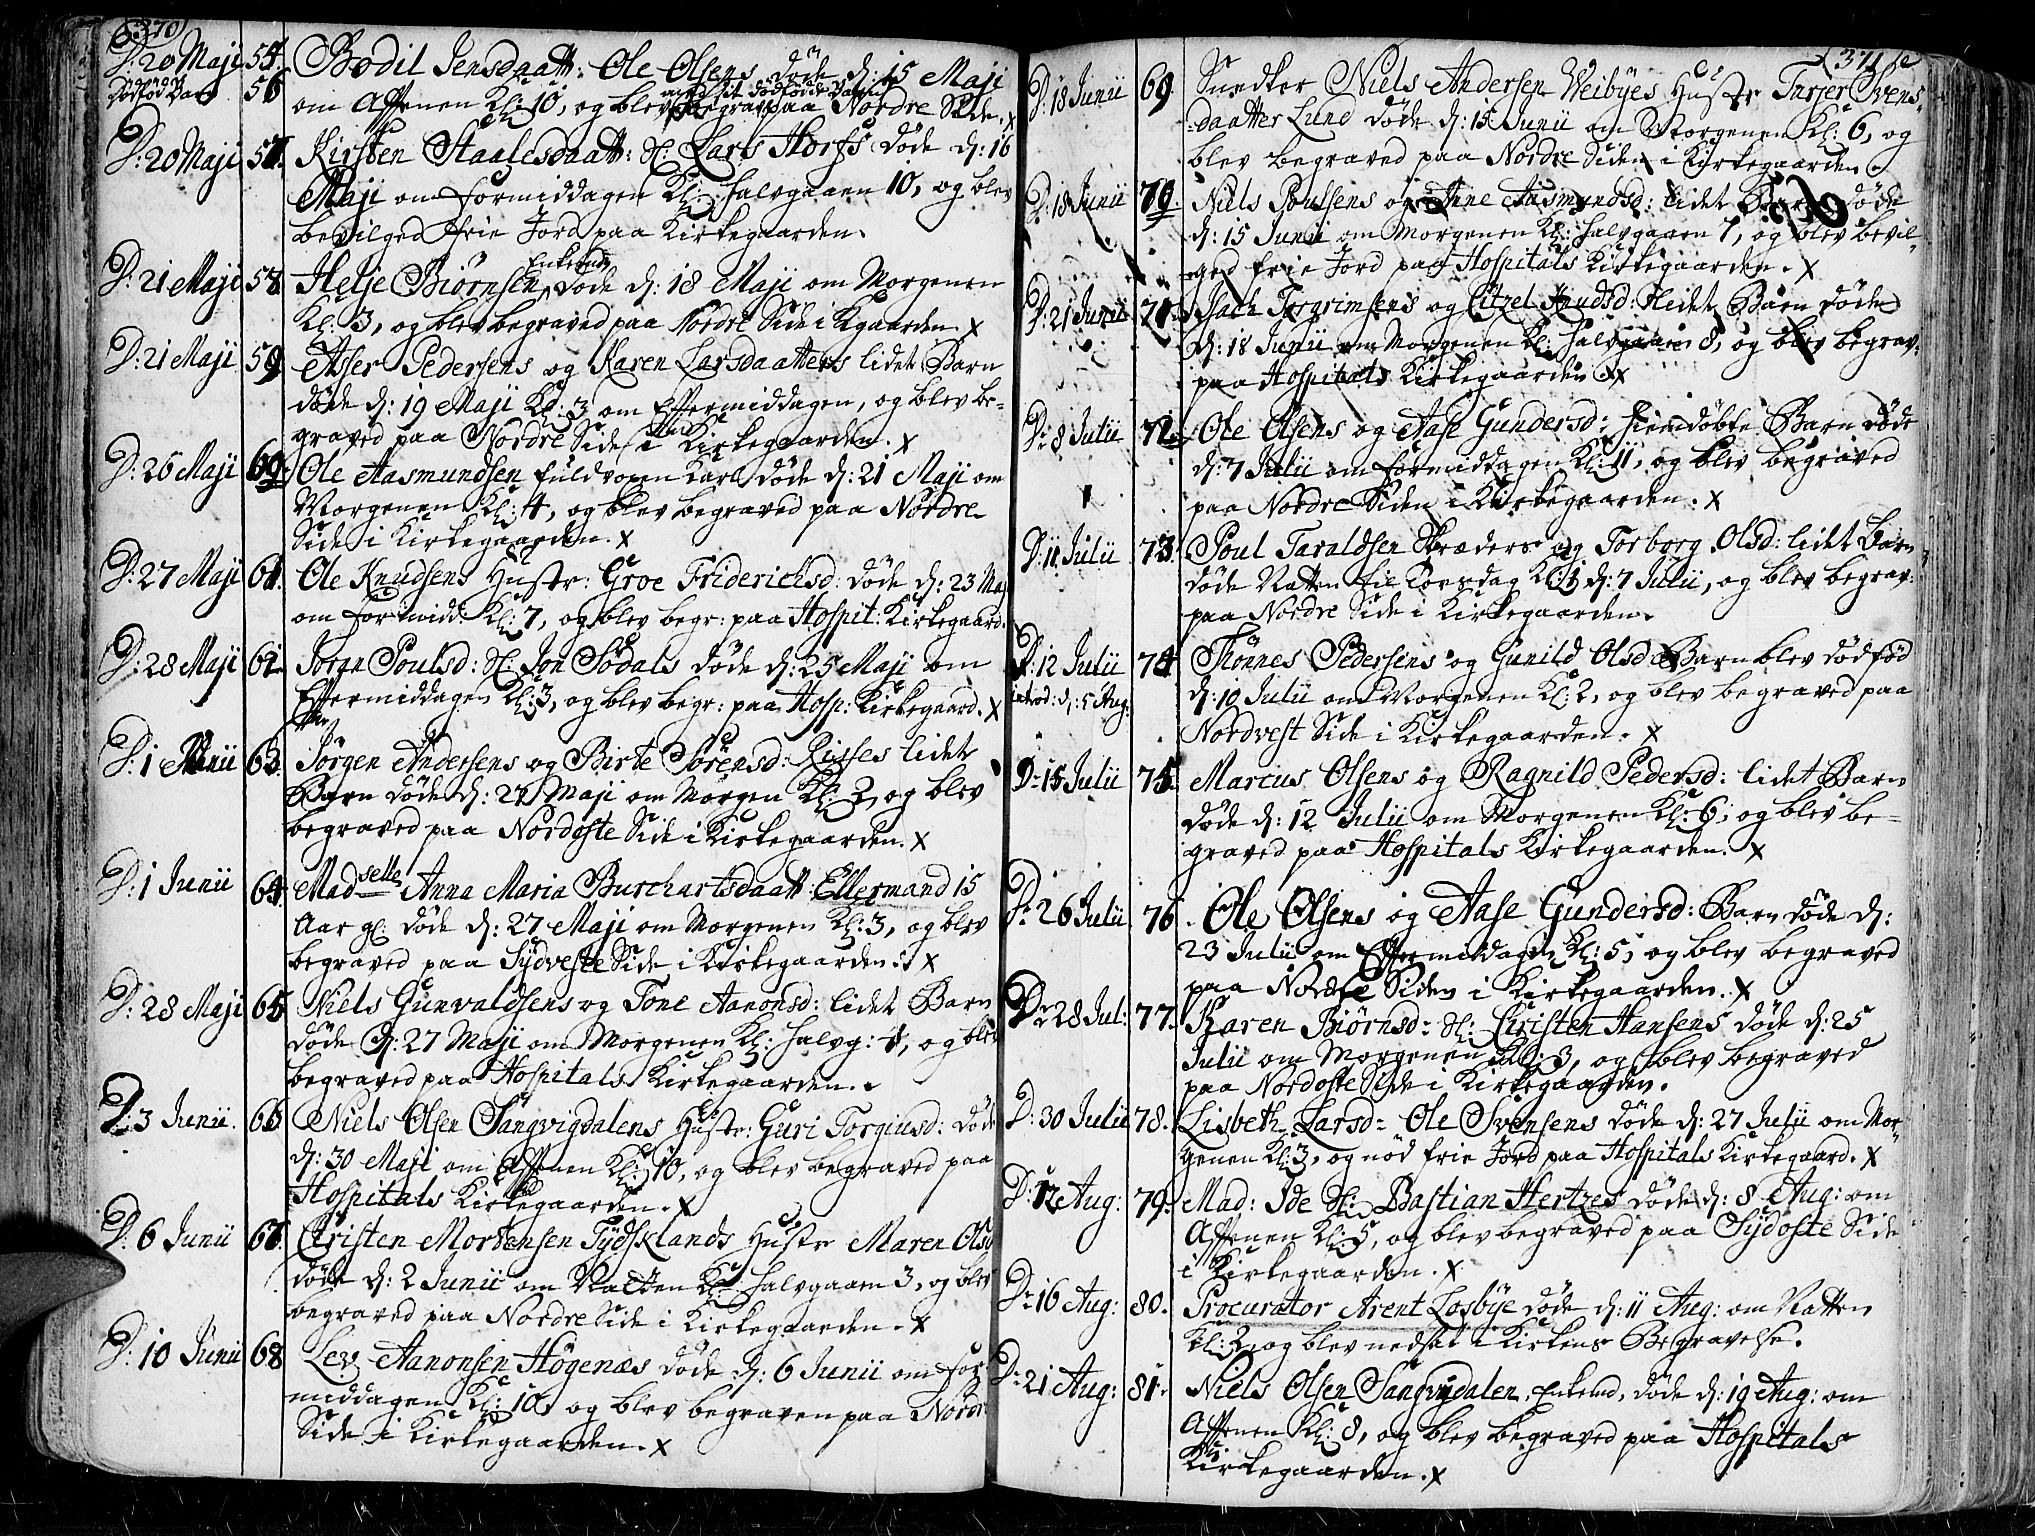 370
D: 20 Maji 55. Bodil Jensdaatt: Ole Olsens døde d: 15 Maji
Dødfød Barn 56 om Afftenen Kl: 10, og blev med sit dødfødde Barn begrav: paa Nordre Side. x
D: 20 Maji 57. Kirsten Staalesdaatt: Sl: Lars Horfs døde d: 16
Maji om Formiddagen Kl: halvgaaen 10, og blev
bevilged frie Jord paa Kirkegaarden.
D: 21 Maji 58 Helje Biørnsen Enkemd døde d: 18 Maji om Morgenen
Kl: 3, og blev begraved paa Nordre Side i Kgaarden. x
D: 21 Maji 59 Atser Pedersens og Karen Larsdaatters lidet Barn
døde d: 19 Maji Kl: 3 om Eftermiddagen, og blev be-
graved paa Nordre Side i Kirkegaarden. x
D: 26 Maji 60. Ole Aasmundsen fuldvoxen Karl døde d: 21 Maji om
Morgenen Kl: 4, og blev begraved paa Nordre
Side i Kirkegaarden. x
D: 27 Maji 61. Ole Knudsens Hustr: Groe Friderichsd: døde d: 23 Maj
om formidd: Kl: 7, og blev begr: paa Hospit: Kirkegaard.
D: 28 Maji 62 Joran Poulsd: Sl: Jon Sødals døde d: 25 Maji om
Eftermiddagen Kl: 3, og blev begr: paa Hosp: Kirkegaard. x
D: 1 Junii 63. Jørgen Andersens og Birte Sørensd: Risses lidet
Barn døde d: 27 Maji om Morgen Kl: 2, og blev
begraved paa Nordoste Side i Kirkegaarden. x
D: 1 Junii 64 Madselle Anna Maria Burchartsdaatt: Ellermand 15
Aar gl: døde d: 27 Maji om Morgenen Kl: 3, og blev
begraved paa Sydveste Side i Kirkegaarden. x
D: 28 Maji 65 Niels Gunvaldsens og Tone Aanonsd: lidet Barn
døde d: 27 Maji om Morgenen Kl: halvg: 4, og blev
begraved paa Hospitals Kirkegaarden.
D: 3 Junii. 66 Niels Olsen Sangvigdalens Hustr: Guri Torgiusd: døde
d: 30 Maji om Afftenen Kl: 10, og blev begraved paa
Hospitals Kirkegaarden. x
D: 6 Junii 67. Christen Mortensen Tydsklands Hustr Maren Olsd
døde d: 2 Junii om Natten Kl: halvgaaen 3, og blev
begraved paa Nordre Side i Kirkegaarden. x
D: 10 Junii 68 Lev Aanonsen Høgenæs døde d: 6 Junii om for-
middagen Kl: 10, og blev begraven paa Nordre
Side i Kirkegaarden. x
371
D: 18 Junii 69 Snedker Niels Andersen Weibyes Hustr Turjer Svens-
daatter Lund døde d: 15 Junii om Morgenen Kl: 6, og
blev begraved paa Nordre Siden i Kirkegaarden.
D: 18 Junii 70. Niels Poulsens og Anne Aasmundsd: lidet Barn døde
d: 15 Junii om Morgenen Kl: halvgaaen 7, og blev bevil-
ged frie Jord paa Hospitals Kirkegaarden. x
D: 21 Junii 71. Isach Torgrimsens og Sitzel Knudsd: lidet Barn døde
d: 18 Junii om Morgenen Kl: halvgaaen 8, og blev begrav:
paa Hospitals Kirkegaarden x
D: 8 Julii 72. Ole Olsens og Aase Gundersd: hiemdøbte Barn døde
d: 7 Julii om formiddagen Kl: 11, og blev begraved
paa Nordre Siden i Kirkegaarden. x
D: 11 Julii 73. Poul Taraldsen Skræders og Torborg Olsd: lidet Barn
døde Natten til Torsdag Kl: 1 d: 7 Julii, og blev begrav:
paa Nordre Side i Kirkegaarden.
D: 12 Julii 74 Tønnes Pedersens og Gunild Olsd Barn blev dødfød
d: 5 Aug: d: 10 Julii om Morgenen Kl: 2, og blev begraved paa
Nordvest Side i Kirkegaarden. x
D: 15 Julii 75. Marcus Olsens og Ragnild Pedersd: lidet Barn
døde d: 12 Julii om Morgenen Kl: 6, og blev be-
graved paa Hospitals Kirkegaarden. x
D: 26 Julii 76. Ole Olsens og Aase Gundersd: Barn døde d:
23 Julii om Eftermiddagen Kl: 5, og blev begraved
paa Nordre Siden i Kirkegaarden. x
D: 28 Jul: 77. Karen Biørnsd: Sl: Christen Hansens døde d: 25
Julii om Morgenen Kl: 3, og blev begraved
paa Nordoste Side i Kirkegaarden.
D: 30 Julii 78. Lisbeth Larsd: Ole Svensens døde d: 27 Julii om Mor-
genen Kl: 3, og nød frie Jord paa Hospitals Kirkegaard. x
D: 12 Aug: 79. Mad: Ide Sl: Bastian Hertzes døde d: 8 Aug: om
Afftenen Kl: 5, og blev begraved paa Sydoste Side
i Kirkegaarden. x
D: 16 Aug: 80. Procurator Arent Losbye døde d: 11 Aug: om Natten
Kl: 2, og blev nedsat i Kirkens Begravelse.
D: 21 Aug: 81. Niels Olsen Sangvigdalen, Enkemd, døde d: 19 Aug: om
Afftenen Kl: 8, og blev begraved paa Hospitals
Kirkegaarden. x